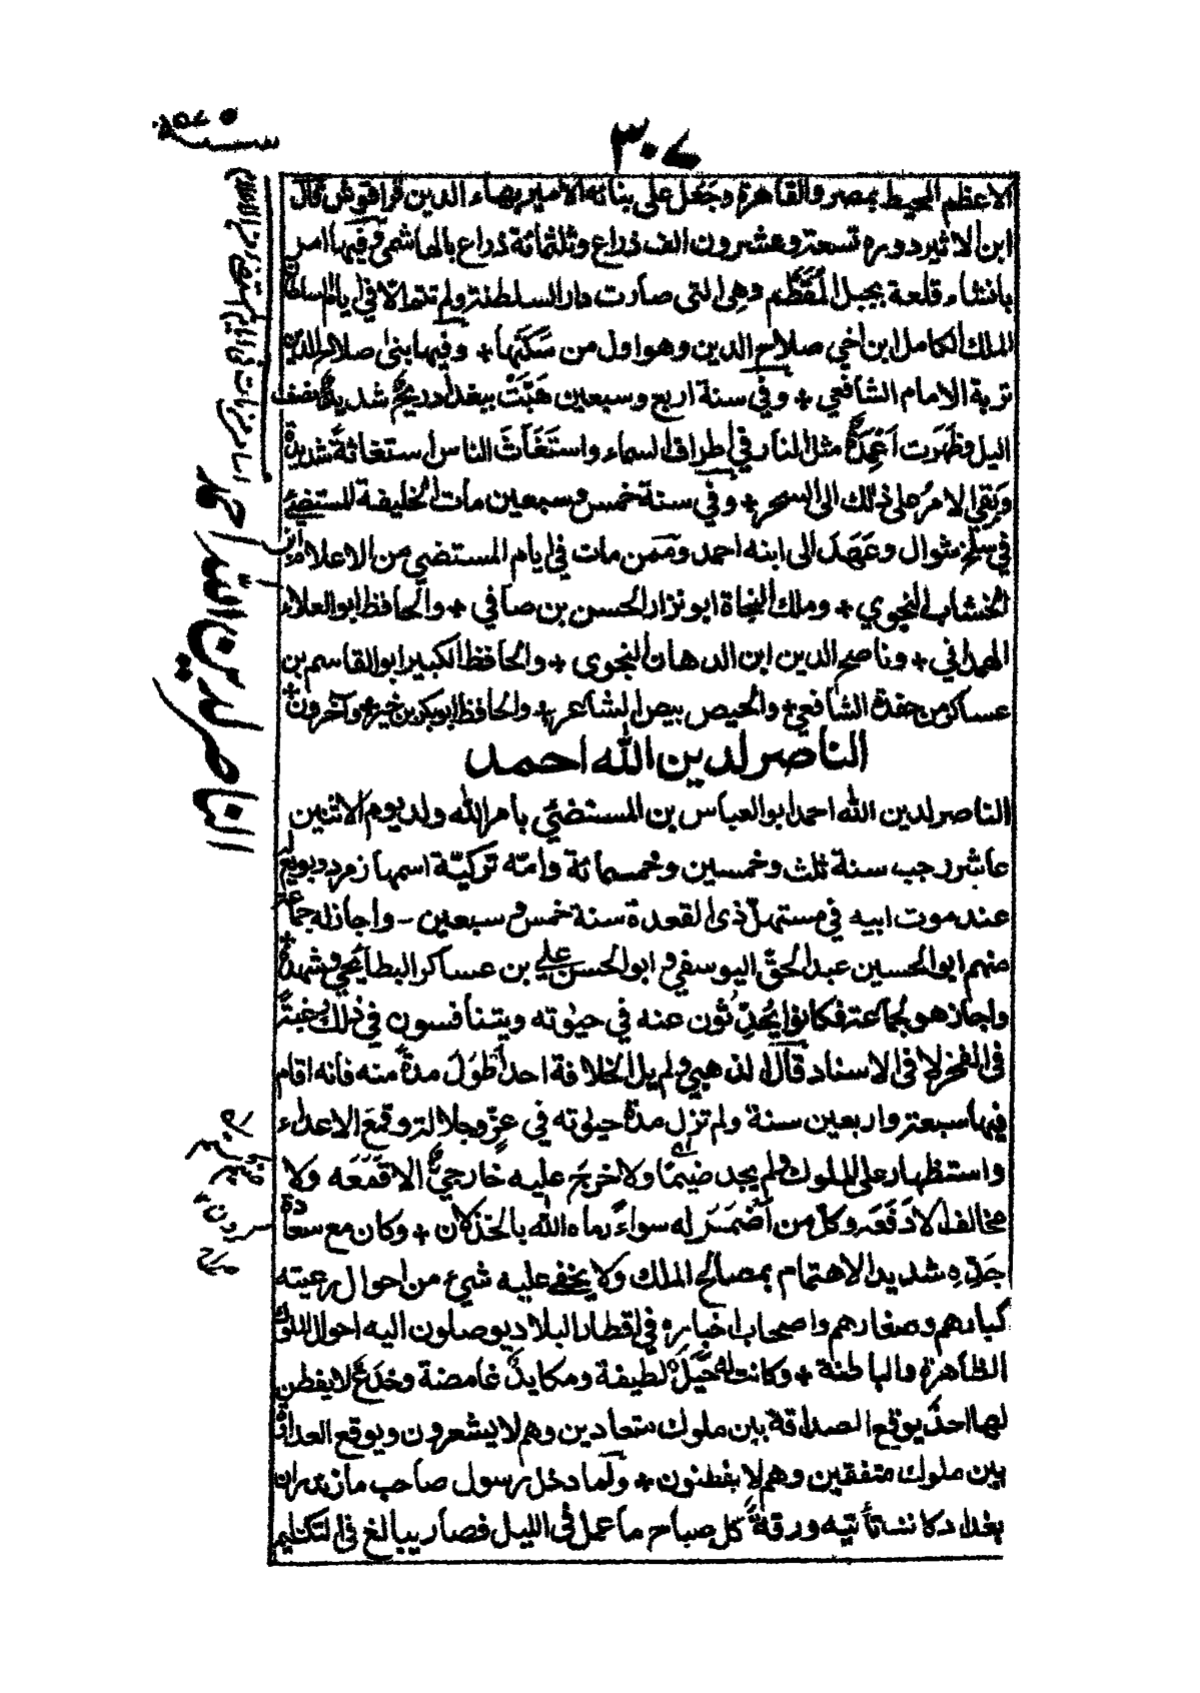 ٣٠٧
الاعظم المحيط بمصر والقاهرة وجَعَل على بنائه الامير بهاء الدين قراقوش قال
ابن الاثير دوره تسعة وعشرون الف ذراع وثلثمائة ذراع بالهاشمى وفيها امر
بانشاء قلعة بجبل المُقَطَّم وهى التى صارت دار السلطنة ولم تتم الا فى ايام السلطان
الملك الكامل ابن اخي صلاح الدين وهو اول من سَكَنَها + وفيها بنى صلاح الدين
تربة الامام الشافعي + وفي سنة اربع وسبعين هَبَّتْ ببغداد ريحٌ شديدةٌ نصف
اليل وظَهَرَت اَعْمِدَةٌ مثل النار في اطراف السماء واستَغَاثَ الناس استغاثةً شديدةً
وبَقى الامرُ على ذلك الى السحر + وفي سنة خمس وسبعين مات الخليفة المستضئ
في سلخ شوال وعَهَدَ الى ابنه احمد وممن مات في ايام المستضي من الاعلام ابن
الخشاب النحوي + وملك النحاة ابو نزار الحسن بن صافي + والحافظ ابو العلاء
الهمدانى + وناصح الدين ابن الدهان النحوى + والحافظ الكبير ابو القاسم بن
عساكر من حفدة الشافعي + والحيص بيص الشاعر + والحافظ ابو بكر بن خير + وآخرون +
الناصر لدين الله احمد
الناصر لدين الله احمد ابو العباس بن المستضئي بامر الله ولد يوم الاثنين
عاشر رجب سنة ثلث وخمسين وخمسمائة وامّه تركيّة اسمها زمرد وبويع له
عند موت ابيه في مستهلّ ذى القعدة سنة خمس وسبعين - واجاز له جماعة
منهم ابو الحسين عبد الحقّ اليوسفي و ابو الحسن علي بن عساكر البطايحي وشهدة +
واجاز هو لجماعة فكانوا يُحَدِّثُون عنه في حيوته ويتنافسون في ذلك رغبةً
فى الفخر لا فى الاسناد قال الذهبي ولم يل الخلافة احد اَطْوَلَ مدةً منه فانه اقام
فيها سبعة واربعين سنة ولم تزل مدة حيوته في عزٍّ وجلالة وقمع الاعداء
واستظهار على الملوك ولم يجد ضيمًا ولا خرج عليه خارجيٌّ الا قَمَعَه ولا
مخالف الا دَفَعَه وكل من اَضْمَرَ له سواءً رماه الله بالخذلان + وكان مع سعادة
جَدِّه شديد الاهتمام بمصالح الملك ولا يخفى عليه شئ من احوال رعيته
كبارهم وصغارهم واصحاب اخباره فى اقطار البلاد يوصلون اليه احوال الملوك
الظاهرة والباطنة + وكانت له حِيَلٌ لطيفة ومكايدُ غامضة وخدَعٌ لا يفطن
لها احدٌ يوقع الصداقة بين ملوك متعادين وهم لا يشعرون ويوقع العداوة
بين ملوك متفقين وهم لا يفطنون + ولما دخل رسول صاحب مازندران
بغداد كانت تأتيه ورقةٌ كل صباح ما عمل فى الليل فصار يبالغ فى التكتيم
الناصر لدين الله احمد